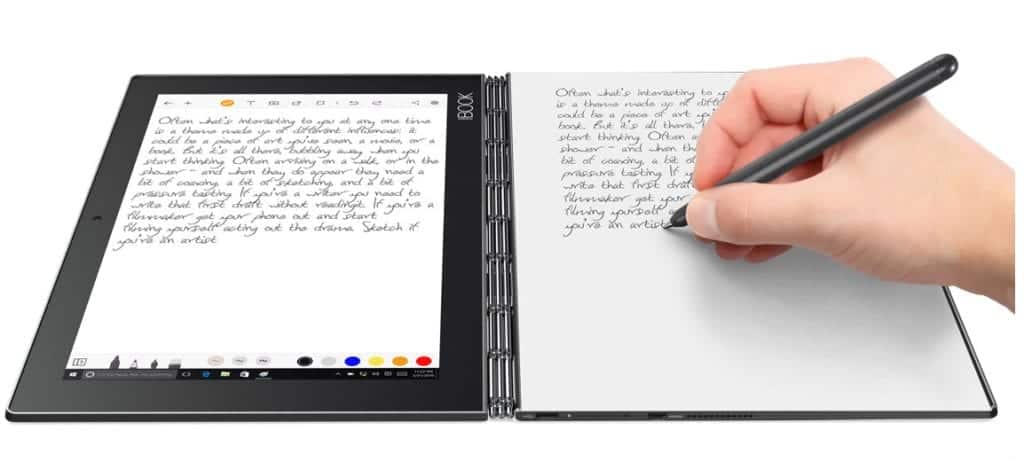 Often what's interesting to you at any one time
is a theme made up of different influences: it
could be a piece of art you've seen, a movie, or a
book. But it's all there, bubbling away when you
start thinking. Often arriving on a walk or in the
shower - and when they do appear they need a
bit of coaxing, a bit of sketching, and a bit of
pressure testing. If you're a writer you need to
write that first draft without reading it. If you're a
filmmaker get your phone out and start
filming yourself acting out the drama. Sketch if
you're an artist
BOOK
Often what's interesting to
is a theme made up of
could be a piece of art
book. But it's all there,
start thinking. Often
shower - and when
bit of coaxing, a bit
pressure testing. If
write that first draft
filmmaker get your
filming yourself
you're an artist